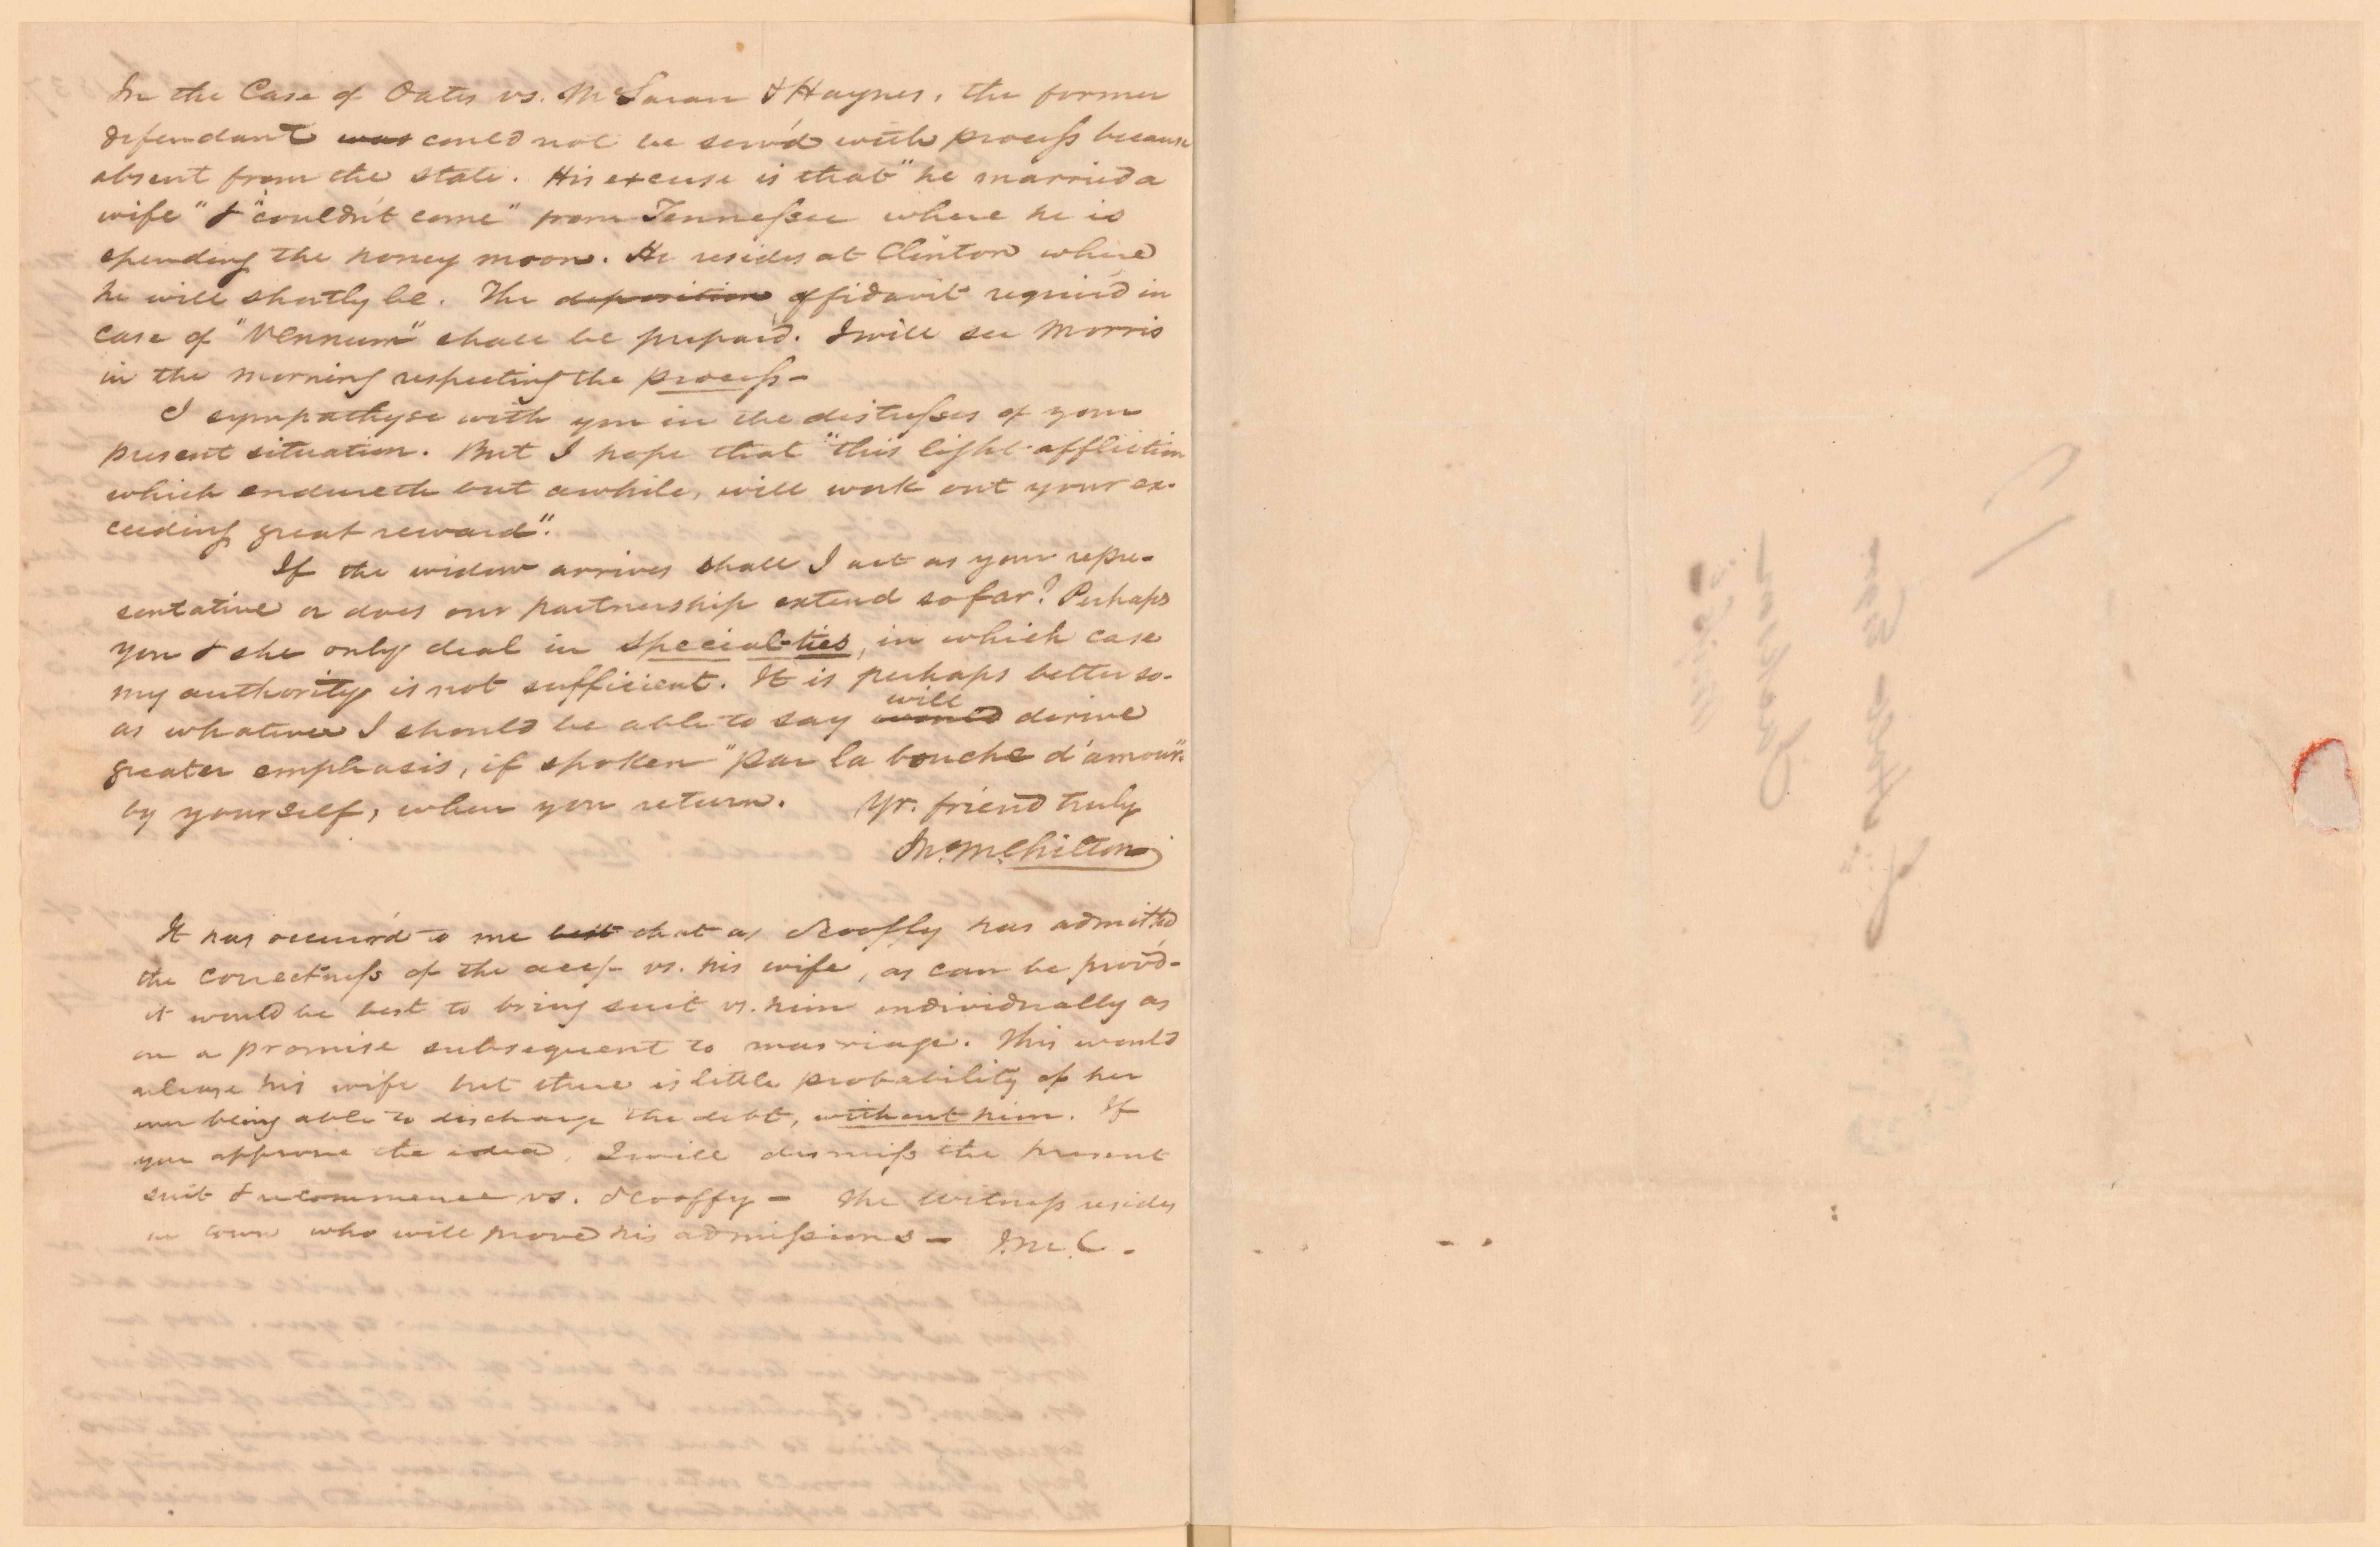 In the Case of Oates vs. McLaran & Haynes, the former
defendant was could not be serv'd with process because
absent from the state. His excuse is that "he married a
wife" & "couldn't come" from Tennessee where he is
spending the honey moon. He resides at Clinton where
he will shortly be. The deposition affidavit requir'd in
case of "Vennum" shall be prepar'd. I will see Morris
in the morning respecting the process-
I sympathyse with you in the distresses of your
present situation. But I hope that "this light affliction
which endureth but awhile, will work out your ex-
ceeding great reward".
If the widow arrives shall I act as your repre-
sentative or does our partnership extend so far? Perhaps
you & she only deal in special-ties, in which case
my authority is not sufficient. It is perhaps better so-
as whatever I should be able to say would will derive
greater emphasis, if spoken "par la bouche d'amour".
by yourself, when you return. Yr. friend truly
Jn. M. Chilton
It has occurr'd to me best that as Scooffy has admitted
the correctness of the acct vs. his wife, as can be prov'd-
it would be best to bring suit vs. him individually as
on a promise subsequent to marriage. This would
release his wife but there is little probability of her
ever being able to discharge the debt, without him. If
you approve the idea, I will dismiss the present
suit & recommence vs. Scooffy - The witness resides
in town who will prove his admissions - J.M.C.